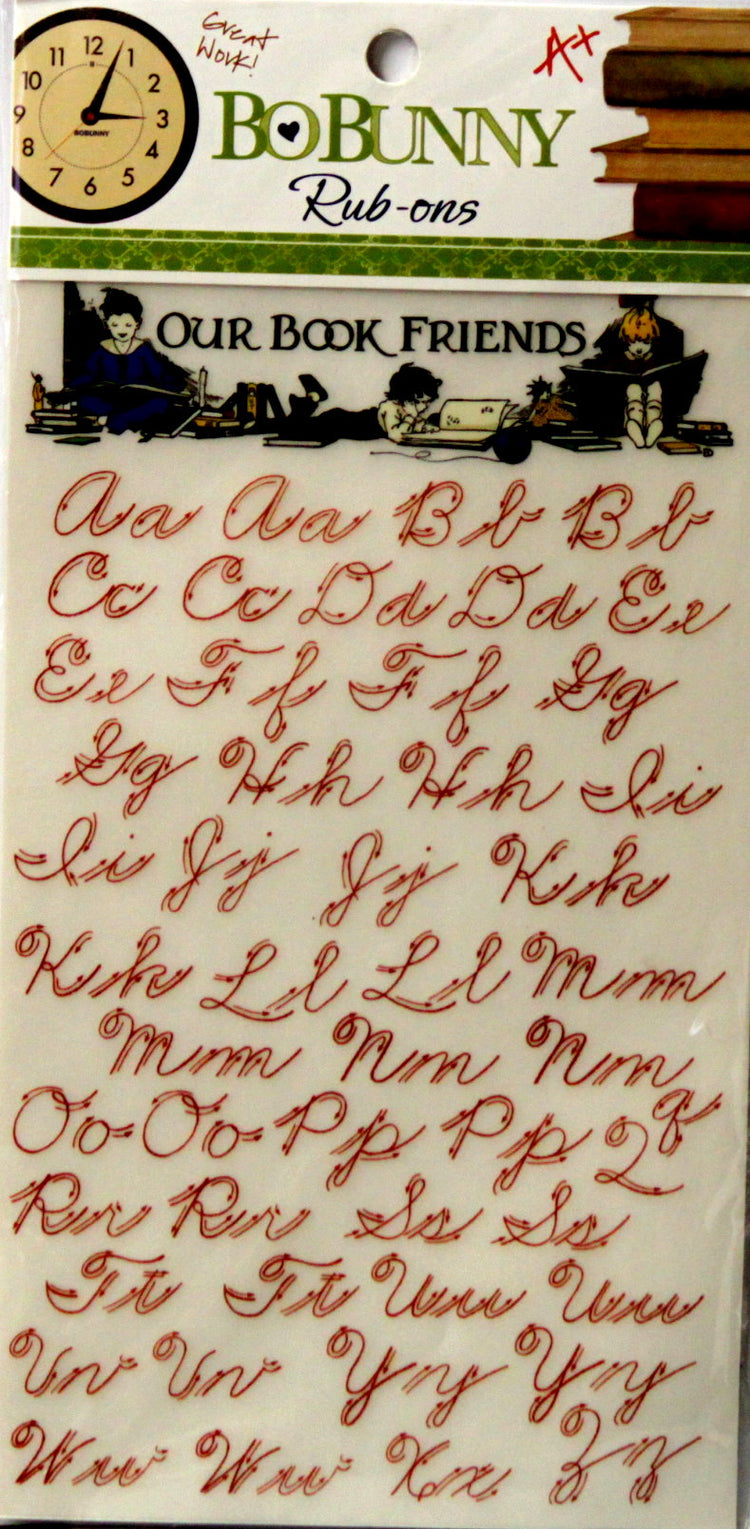 Great
Work!
A+
12
11 1
10 2
9 3
8 4
7 5
6
BOBUNNY
BOBUNNY
Rub-ons
OUR BOOK FRIENDS
Aa Aa Bb Bb
Cc Cc Dd Dd Ee
Ee Ff Ff Gg
Gg Hh Hh Ii
Ii Jj Jj Kk
Kk Ll Ll Mm
Mm Nn Nn
Oo Oo Pp Pp Qq
Rr Rr Ss Ss
Tt Tt Uu Uu
Vv Vv Yy Yy
Ww Ww Xx Zz